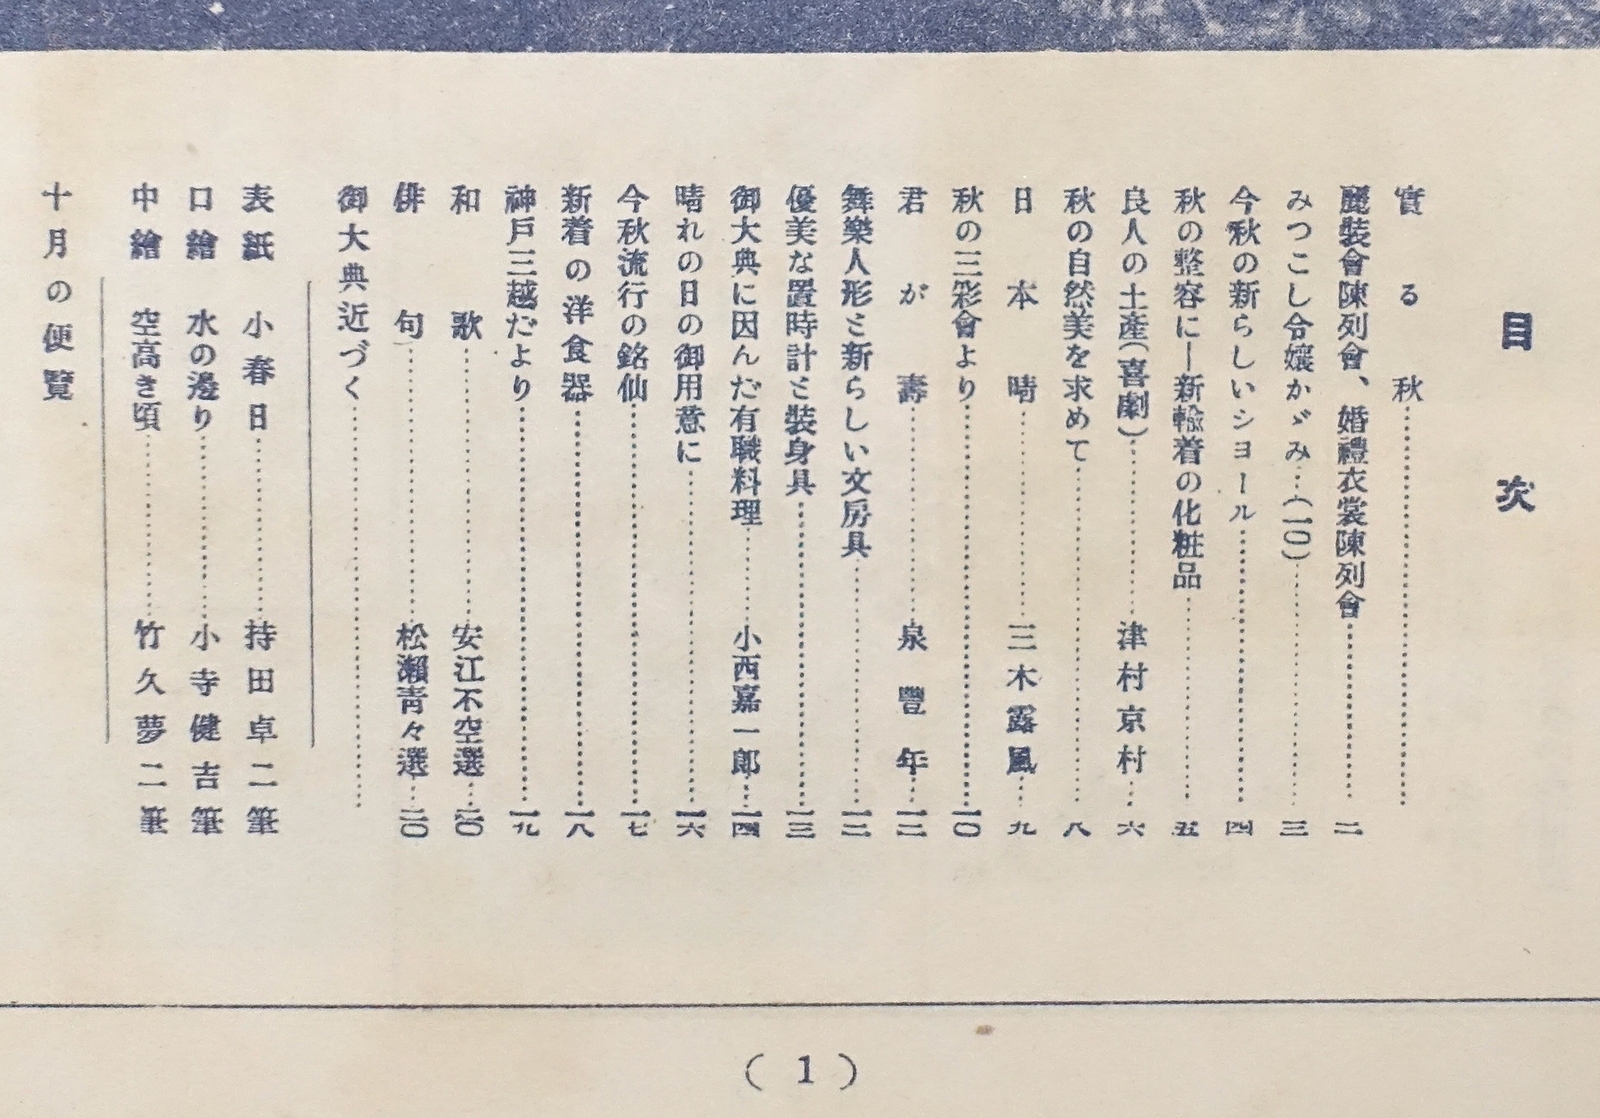 目次
實る秋…………
麗裝會陳列會、婚禮衣裳陳列會…………二
みつこし令孃かゞみ…(一〇)…………三
今秋の新らしいショール…………四
秋の整容に―新輸着の化粧品…………五
良人の土產(喜劇)…………津村京村…六
秋の自然美を求めて…………八
日本晴…………三木露風…九
秋の三彩會より…………一〇
君が壽…………泉豐年…一二
舞樂人形と新らしい文房具…………一二
優美な置時計と裝身具…………一三
御大典に因んだ有職料理…………小西嘉一郎…一四
晴れの日の御用意に…………一六
今秋流行の銘仙…………一七
新着の洋食器…………一八
神戶三越だより…………一九
和歌…………安江不空選…二〇
俳句…………松瀨靑々選…二〇
御大典近づく…………
表紙 小春日…………持田卓二筆
口繪 水の邊り…………小寺健吉筆
中繪 空高き頃…………竹久夢二筆
十月の便覽
(1)